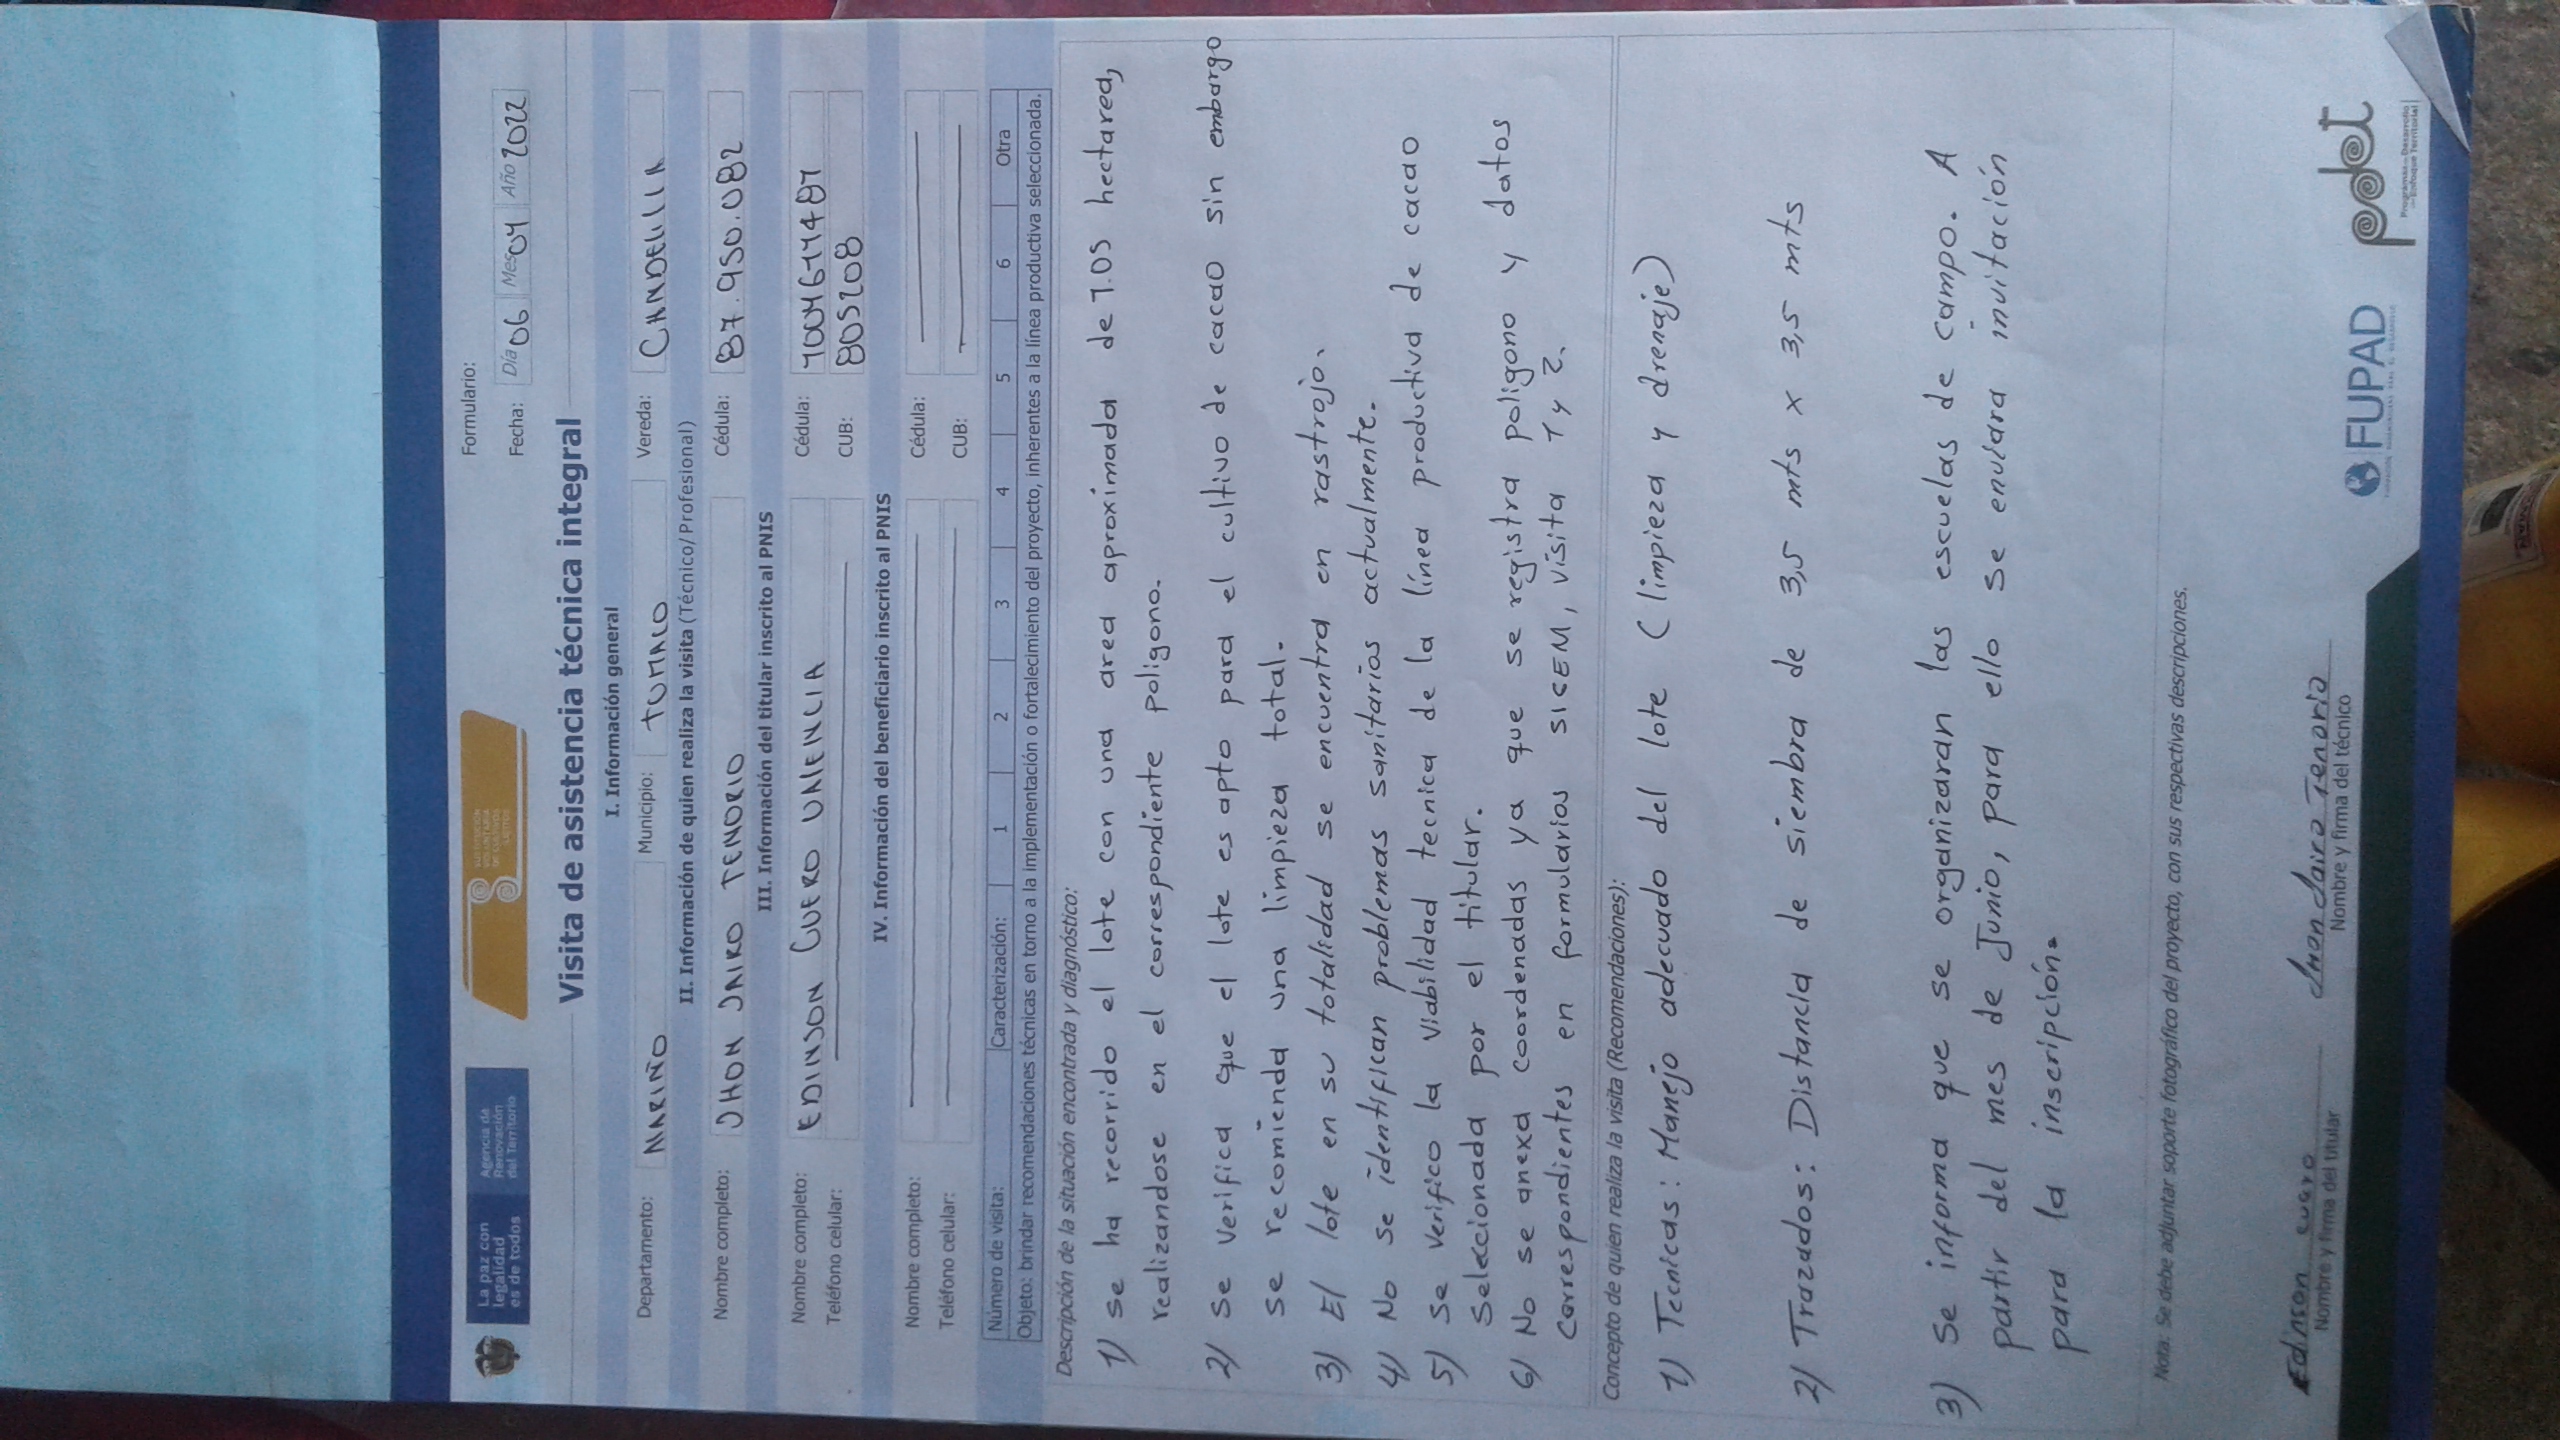 La paz con
legalidad
es de todos
Agencia de
Renovación
del Territorio
SUSTITUCIÓN
VOLUNTARIA
DE CULTIVOS
ILÍCITOS
Formulario:
Fecha: Día 06 Mes 04 Año 2022
Visita de asistencia técnica integral
I. Información general
Departamento: NARIÑO Municipio: TUMACO Vereda: CANDELILLA
II. Información de quien realiza la visita (Técnico/ Profesional)
Nombre completo: JHON JAIRO TENORIO Cédula: 87.950.082
III. Información del titular inscrito al PNIS
Nombre completo: EDINSON CUERO VALENCIA Cédula:
Teléfono celular: CUB: 805208
IV. Información del beneficiario inscrito al PNIS
Nombre completo: Cédula:
Teléfono celular: CUB:
Número de visita: Caracterización: 1 2 3 4 5 6 Otra
Objeto: brindar recomendaciones técnicas en torno a la implementación o fortalecimiento del proyecto, inherentes a la línea productiva seleccionada.
Descripción de la situación encontrada y diagnóstico:
1) Se ha recorrido el lote con una area aproximada de 1.05 hectarea,
realizandose en el correspondiente poligono.
2) Se verifica que el lote es apto para el cultivo de cacao sin embargo
se recomienda una limpieza total.
3) El lote en su totalidad se encuentra en rastrojo.
4) No se identifican problemas sanitarios actualmente.
5) Se verifico la viabilidad tecnica de la línea productiva de cacao
Seleccionada por el titular.
6) No se anexa coordenadas ya que se registra poligono y datos
correspondientes en formularios SICEM, visita 1 y 2.
Concepto de quien realiza la visita (Recomendaciones):
1) Tecnicas: Manejo adecuado del lote (limpieza y drenaje)
2) Trazados: Distancia de siembra de 3,5 mts x 3,5 mts
3) Se informa que se organizaran las escuelas de campo. A
partir del mes de Junio, para ello se enviara invitación
para la inscripción.
Nota. Se debe adjuntar soporte fotográfico del proyecto, con sus respectivas descripciones.
Edinson cuero
Nombre y firma del titular
Jhon Jairo Tenorio
Nombre y firma del técnico
FUPAD
pdet
Programas de Desarrollo
con Enfoque Territorial